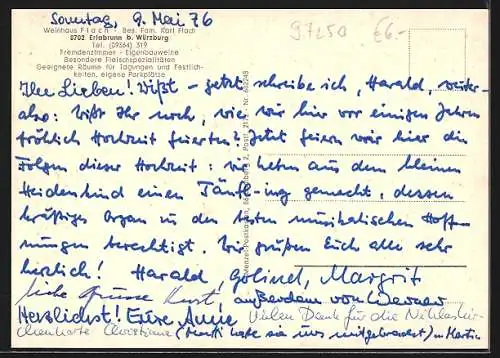 Sonntag, 9. Mai 76
97250 €6.-
Weinhaus Flach · Bes. Fam. Karl Flach
8702 Erlabrunn b. Würzburg
Tel. (09364) 319
Fremdenzimmer · Eigenbauweine
Besondere Fleischspezialitäten
Geeignete Räume für Tagungen und Festlich-
keiten, eigene Parkplätze
Ihr Lieben! Wißt - jetzt schreibe ich, Harald, weiter-
also: wißt Ihr noch, wie wir hier vor einigen Jahren
fröhlich Hochzeit feierten? Jetzt feiern wir hier die
Folgen dieser Hochzeit: wir haben aus dem kleinen
Heidenkind einen Täufling gemacht, dessen
kräftiges Organ zu den besten musikalischen Hoff-
nungen berechtigt. Wir grüßen Euch alle sehr
herzlich! Harald, Margrit
liebe Grüsse Kurt, außerdem von
Herzlichst! Eure Vielen Dank für die
Christiane (Mutti hatte sie uns mitgebracht) u. Martin